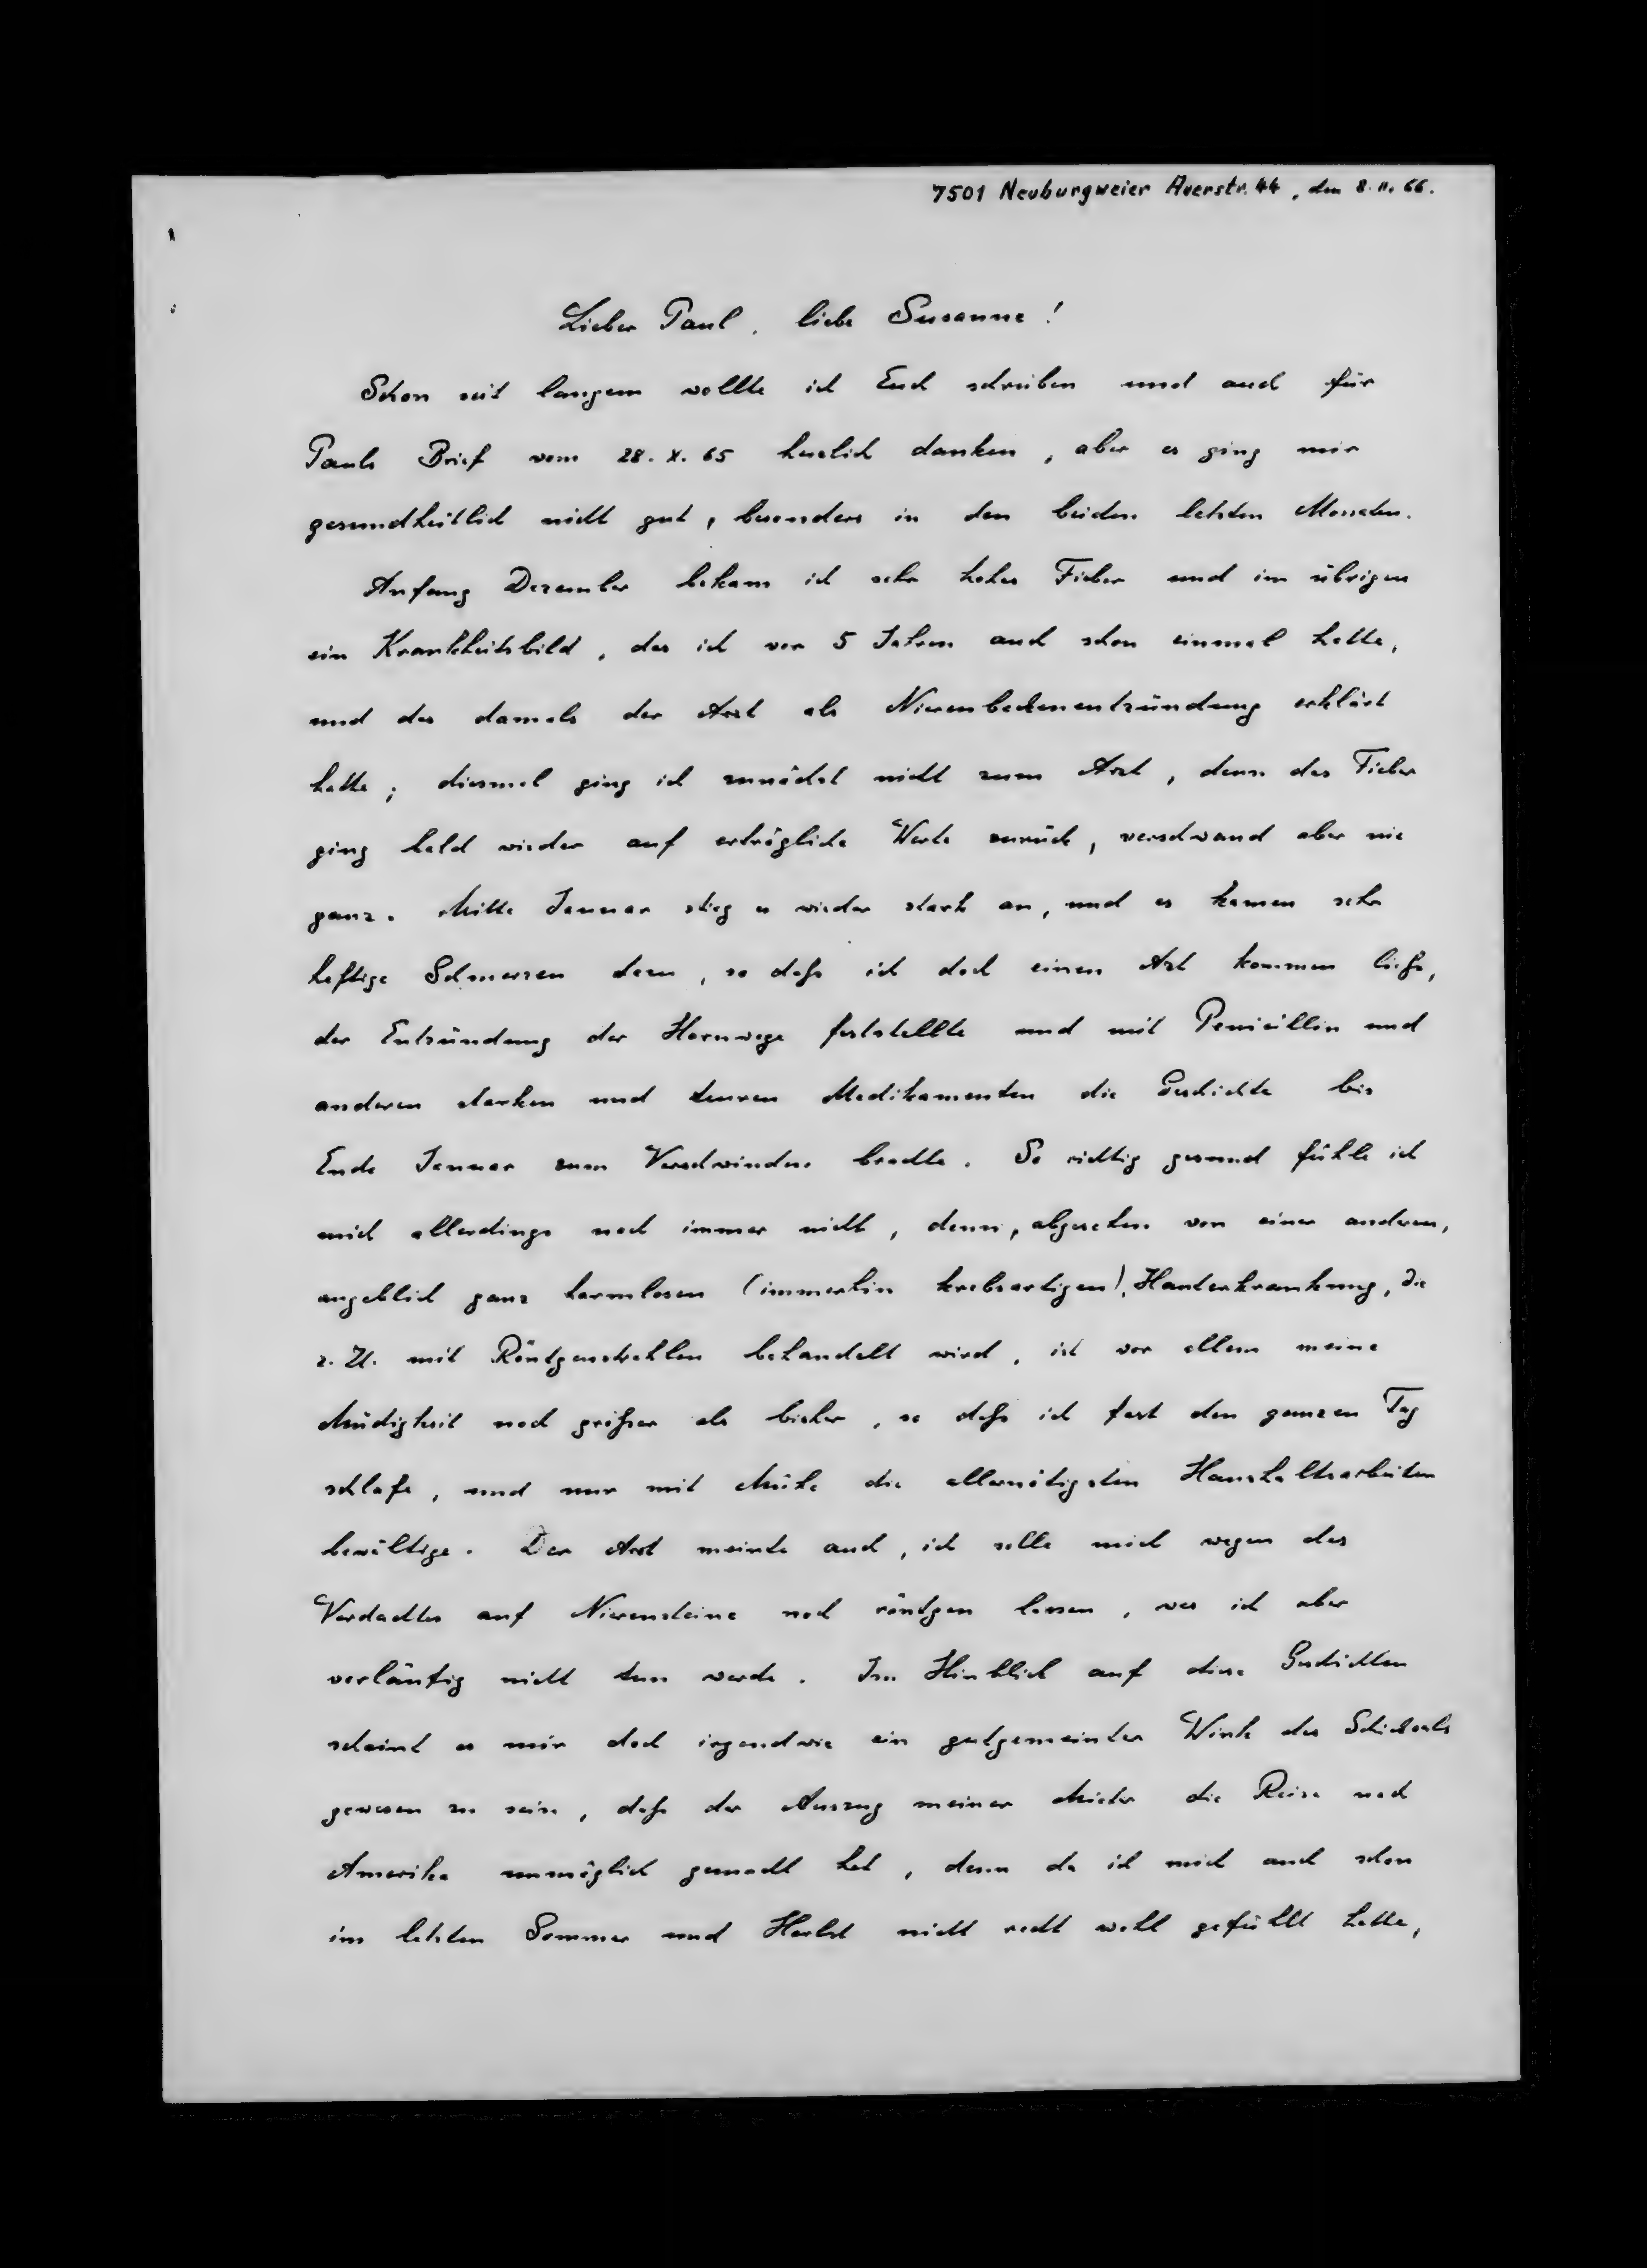 7501 Neuburgweier Auerstr. 44, den 8. II. 66.
Lieber Paul, liebe Susanne!
Schon seit langem wollte ich Euch schreiben und auch für
Pauls Brief vom 28. X. 65 herzlich danken, aber es ging mir
gesundheitlich nicht gut, besonders in den beiden letzten Monaten.
Anfang Dezember bekam ich sehr hohes Fieber und im übrigen
ein Krankheitsbild, das ich vor 5 Jahren auch schon einmal hatte,
und das damals der Arzt als Nierenbeckenentzündung erklärt
hatte; diesmal ging ich zunächst nicht zum Arzt, denn das Fieber
ging bald wieder auf erträgliche Werte zurück, verschwand aber nie
ganz. Mitte Januar stieg es wieder stark an, und es kamen sehr
heftige Schmerzen dazu, so daß ich doch einen Arzt kommen ließ,
der Entzündung der Harnwege feststellte und mit Penicillin und
anderen starken und teuren Medikamenten die Geschichte bis
Ende Januar zum Verschwinden brachte. So richtig gesund fühle ich
mich allerdings noch immer nicht, denn, abgesehen von einer anderen,
angeblich ganz harmlosen (immerhin krebsartigen), Hauterkrankung, die
z. Zt. mit Röntgenstrahlen behandelt wird, ist vor allem meine
Müdigkeit noch größer als bisher, so daß ich fast den ganzen Tag
schlafe, und nur mit Mühe die allernötigsten Haushaltsarbeiten
bewältige. Der Arzt meinte auch, ich solle mich wegen des
Verdachtes auf Nierensteine noch röntgen lassen, was ich aber
vorläufig nicht tun werde. Im Hinblick auf diese Geschichten
scheint es mir doch irgendwie ein gutgemeinter Wink des Schicksals
gewesen zu sein, daß der Auszug meiner Mieter die Reise nach
Amerika unmöglich gemacht hat, denn da ich mich auch schon
im letzten Sommer und Herbst nicht recht wohl gefühlt hatte,